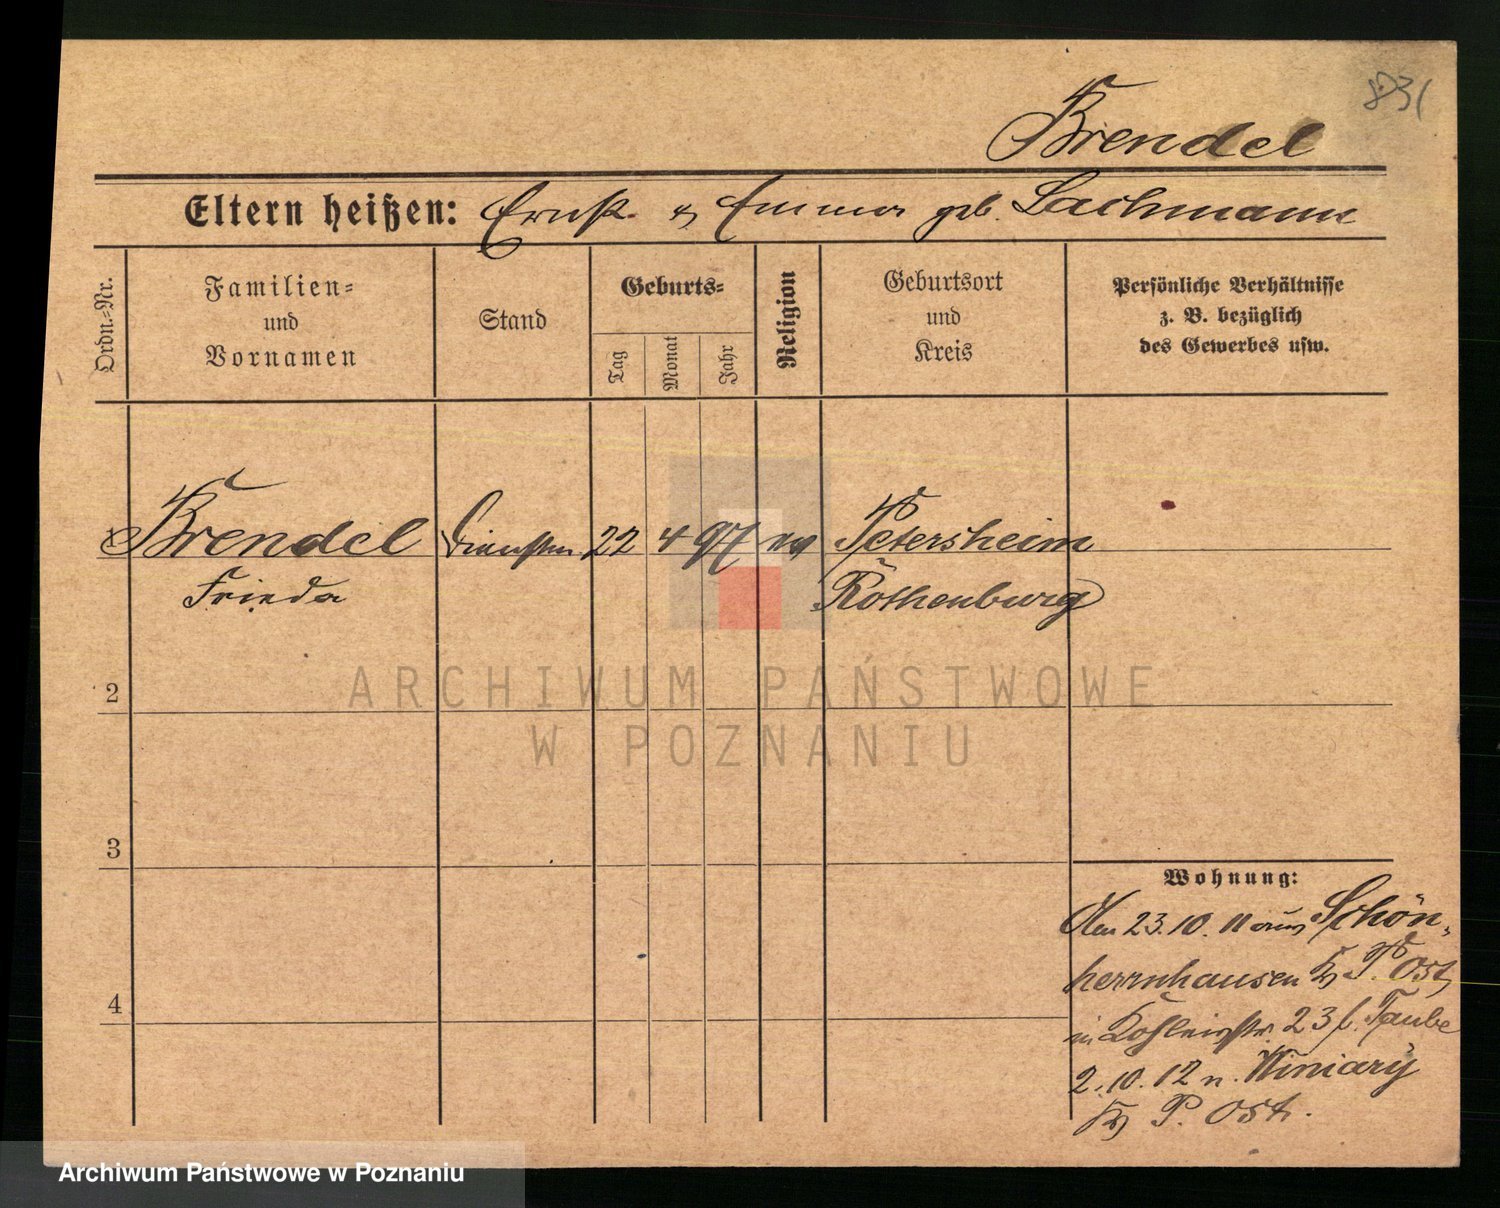 831
Brendel
Eltern heißen: Ernst & Emma geb. Lachmann
Ordn.=Nr.
Familien=
und
Vornamen
Stand
Geburts=
Tag
Monat
Jahr
Religion
Geburtsort
und
Kreis
Persönliche Verhältnisse
z. B. bezüglich
des Gewerbes usw.
1 Brendel 22 4 97 ev Petersheim
Frieda Rothenburg
2
ARCHIWUM PAŃSTWOWE
W POZNANIU
3
4
Wohnung:
23.10.11 aus Schön-
herrnhausen Kr P. Ost,
in 23 b. Taube
2.10.12 n. Winiary
Kr P. Ost.
Archiwum Państwowe w Poznaniu